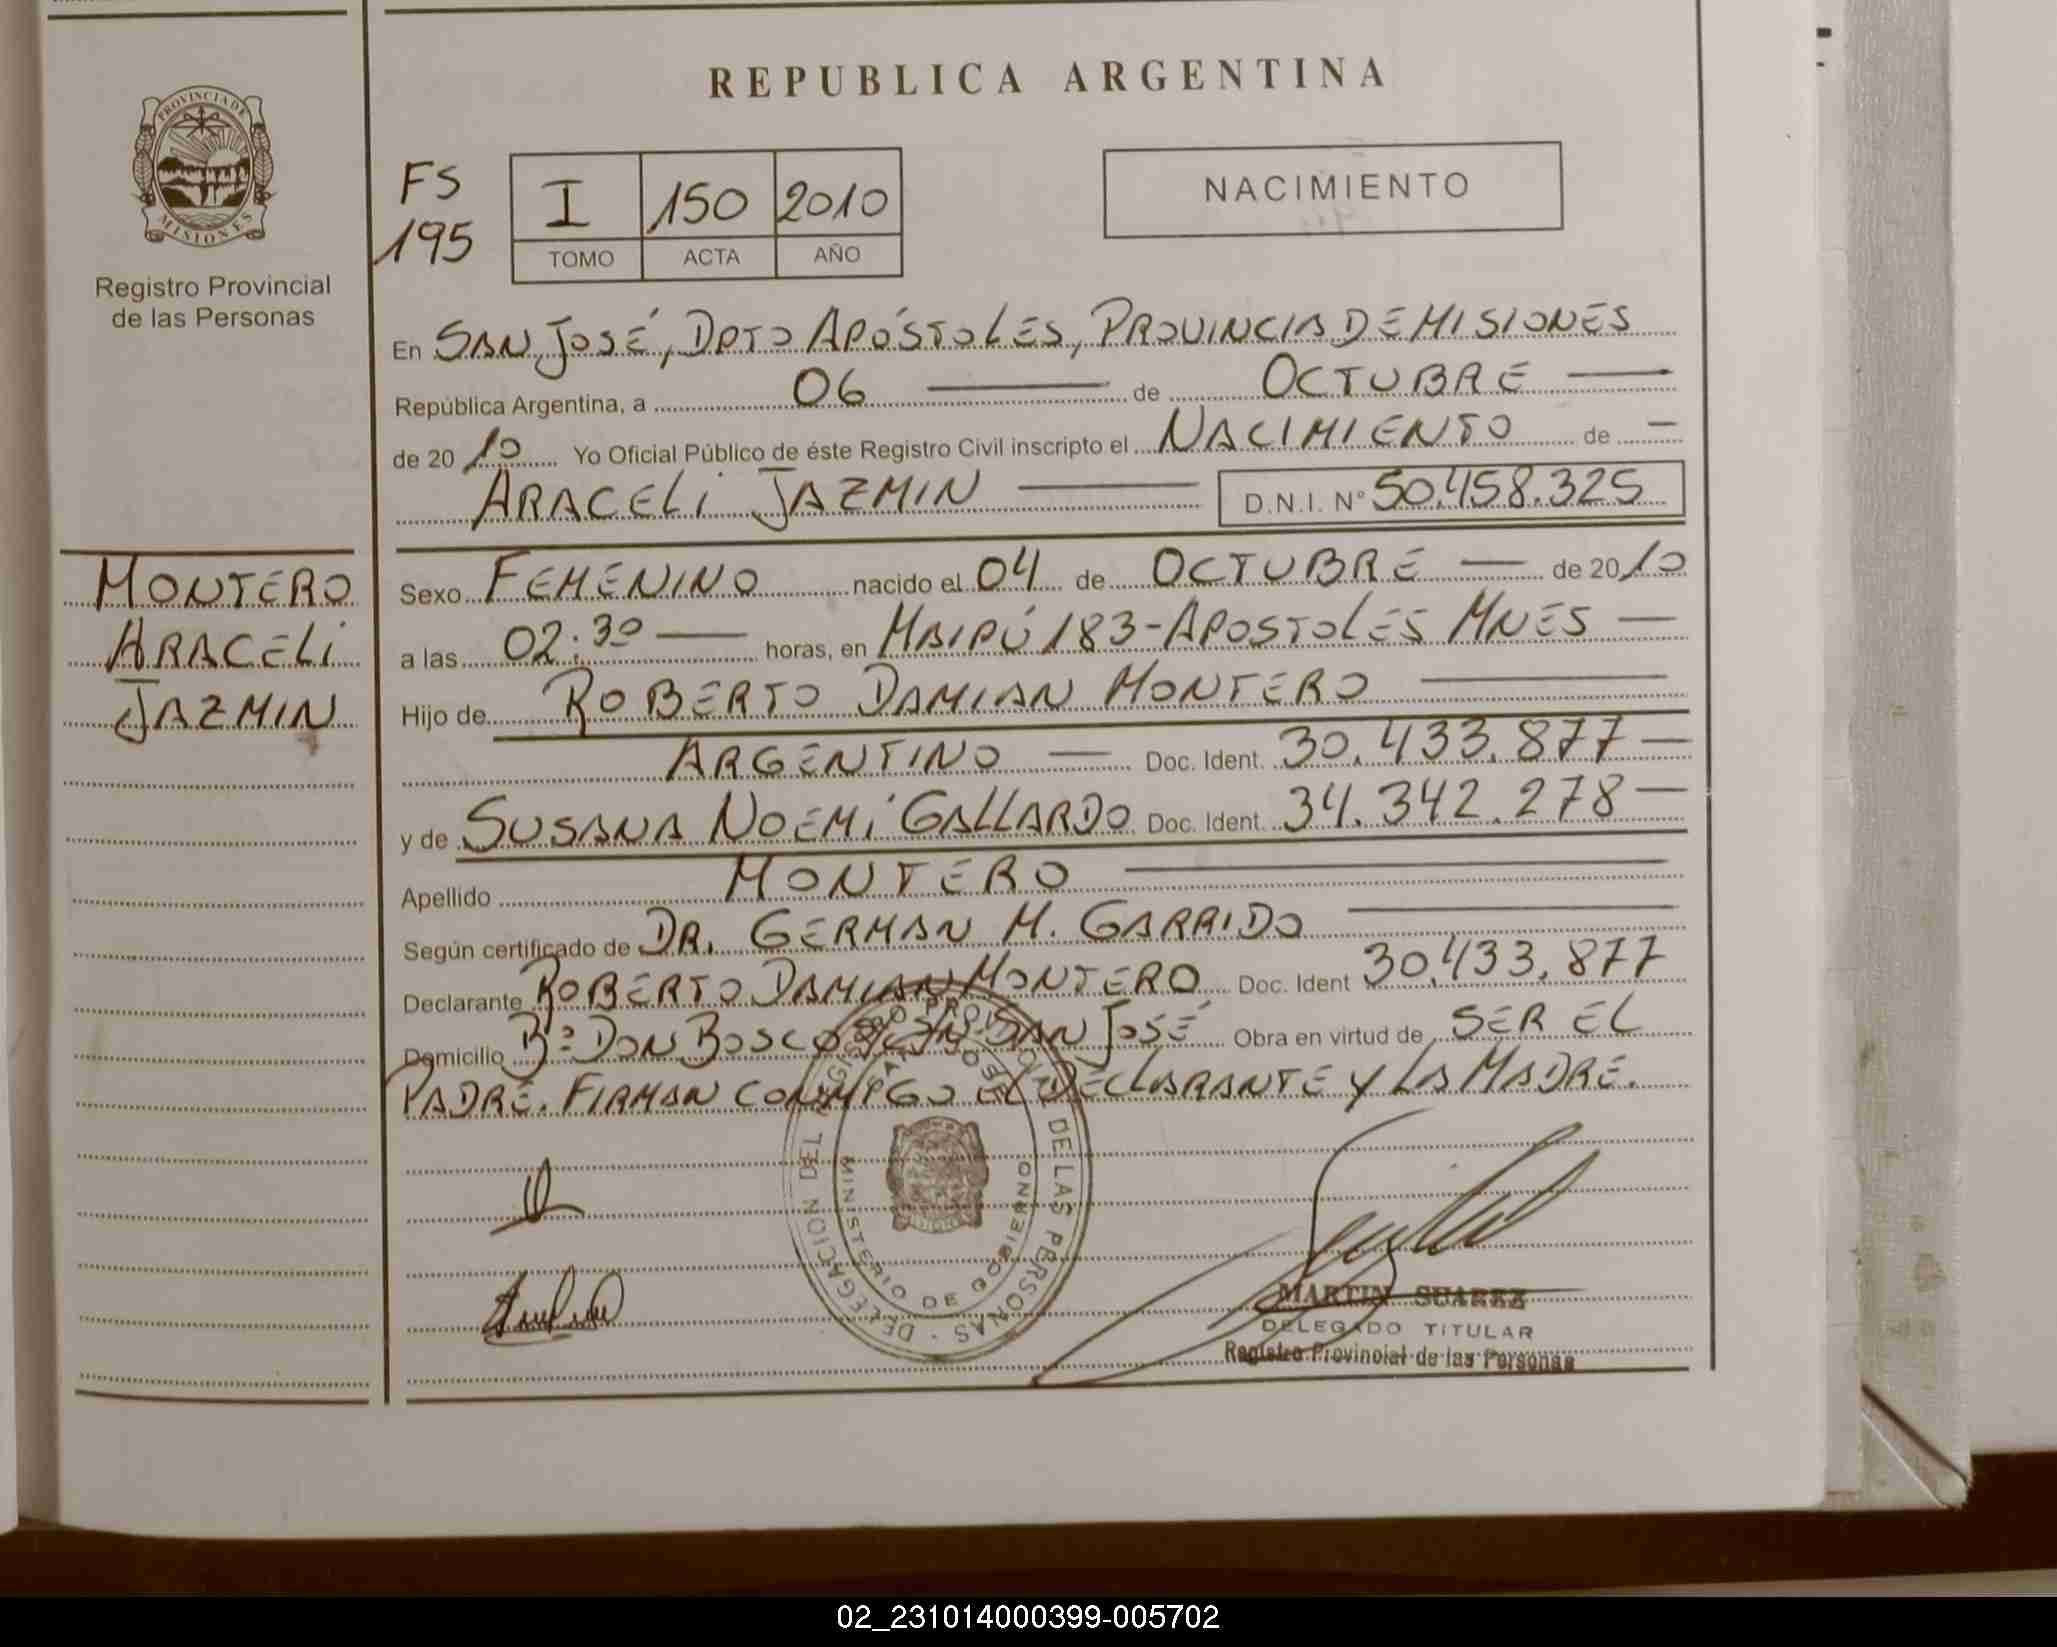 REPUBLICA ARGENTINA
PROVINCIA DE
MISIONES
Registro Provincial
de las Personas
FS
195
I 150 2010
TOMO ACTA AÑO
NACIMIENTO
En SAN JOSÉ, DPTO APÓSTOLES, PROVINCIA DE MISIONES
República Argentina, a 06 — de OCTUBRE —
de 20 10 Yo Oficial Público de éste Registro Civil inscripto el NACIMIENTO de —
ARACELI JAZMIN — D.N.I. N° 50.458.325
MONTERO
ARACELI
JAZMIN
Sexo FEMENINO nacido el 04 de OCTUBRE — de 20 10
a las 02:30 — horas, en MAIPÚ 183-APOSTOLES MNES —
Hijo de ROBERTO DAMIAN MONTERO —
ARGENTINO — Doc. Ident. 30.433.877 —
y de SUSANA NOEMÍ GALLARDO Doc. Ident. 34.342.278 —
Apellido MONTERO —
Según certificado de DR. GERMAN M. GARRIDO —
Declarante ROBERTO DAMIAN MONTERO Doc. Ident 30.433.877
Domicilio B° DON BOSCO SAN JOSÉ Obra en virtud de SER EL
PADRE. FIRMAN CONMIGO EL DECLARANTE Y LA MADRE.
DELEGACION DEL REGISTRO PROVINCIAL DE LAS PERSONAS -
SAN JOSE
MINISTERIO DE GOBIERNO
MARTIN SUAREZ
DELEGADO TITULAR
Registro Provincial de las Personas
02_231014000399-005702